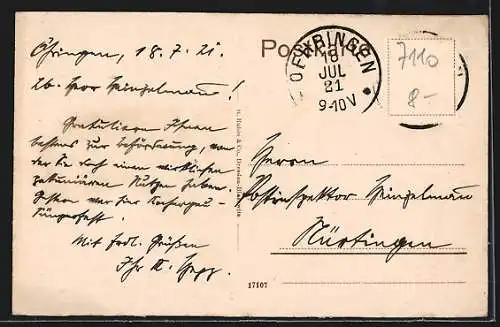 Öhringen, 18.7.21.
Lb. Herr Heinzelmann!
Gratuliere Ihnen
bestens zur Beförderung, von
der Sie doch einen wirklichen
pekuniären Nutzen haben.
Gestern war hier
Mit frdl. Grüßen
Ihr
Postkarte
OEHRINGEN
18
JUL
21
9-10V
7110
8-
Herrn
Postinspektor Heinzelmann
Nürtingen
17107